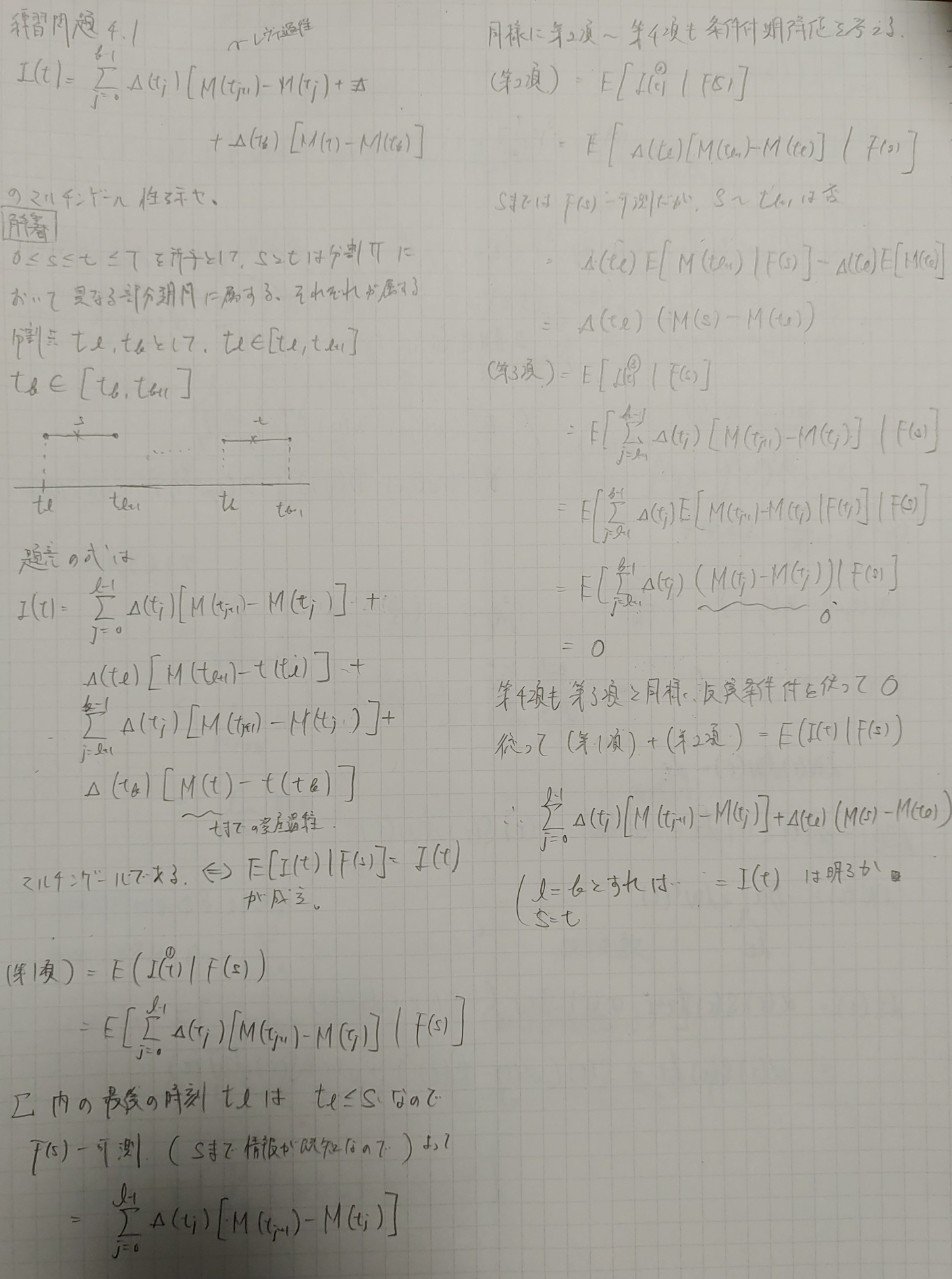 練習問題 4.1
I(t) = Σ_{j=0}^{k-1} Δ(tj) [M(tj+1) - M(tj)] +
+ Δ(tk) [M(t) - M(tk)]
のマルチンゲール性を示せ。
解答
0 ≤ s ≤ t ≤ T を所与として、sとtは分割Πに
おいて異なる部分期間に属する、それぞれが属する
分割点 tl, tkとして、tl ∈ [tl, tl+1]
tk ∈ [tk, tk+1]
s t
tl tl+1 tk tk+1
題意の式は
I(t) = Σ_{j=0}^{l-1} Δ(tj) [M(tj+1) - M(tj)] +
Δ(tl) [M(tl+1) - t(tl)] +
Σ_{j=l+1}^{k-1} Δ(tj) [M(tj+1) - M(tj)] +
Δ(tk) [M(t) - t(tk)]
マルチンゲールである ⇔ E[I(t) | F(s)] = I(t)
が成立。
(第1項) = E(I(t)① | F(s))
= E[Σ_{j=0}^{l-1} Δ(tj) [M(tj+1) - M(tj)] | F(s)]
Σ内の最後の時刻 tl は tl ≤ s なので
F(s)-可測 (sまで情報が既知なので) よって
= Σ_{j=0}^{l-1} Δ(tj) [M(tj+1) - M(tj)]
同様に第2項〜第4項も条件付期待値を考える.
(第2項) = E[I(t)② | F(s)]
= E[Δ(tl) [M(tl+1) - M(tl)] | F(s)]
sまでは F(s)-可測だが、s〜tl+1 は否
= Δ(tl) E[M(tl+1) | F(s)] - Δ(tl) E[M(tl)]
= Δ(tl) (M(s) - M(tl))
(第3項) = E[I(t)③ | F(s)]
= E[Σ_{j=l+1}^{k-1} Δ(tj) [M(tj+1) - M(tj)] | F(s)]
= E[Σ_{j=l+1}^{k-1} Δ(tj) E[M(tj+1) - M(tj) | F(tj)] | F(s)]
= E[Σ_{j=l+1}^{k-1} Δ(tj) (M(tj) - M(tj)) | F(s)]
0
= 0
第4項も第3項と同様、条件付を使って 0
従って (第1項) + (第2項) = E(I(t) | F(s))
∴ Σ_{j=0}^{l-1} Δ(tj) [M(tj+1) - M(tj)] + Δ(tl) (M(s) - M(tl))
(l = k とすれば = I(t) は明らか ■
s = t